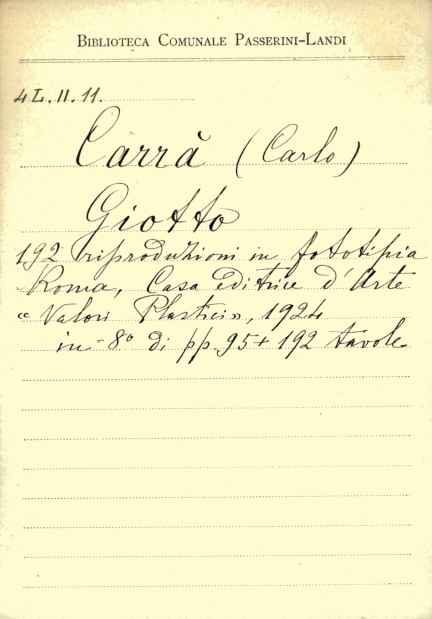 BIBLIOTECA COMUNALE PASSERINI-LANDI
4L.II.11.
Carrà (Carlo)
Giotto
192 riproduzioni in fototipia
Roma, Casa editrice d'Arte
«Valori Plastici», 1924
in-8° di pp. 95+192 tavole